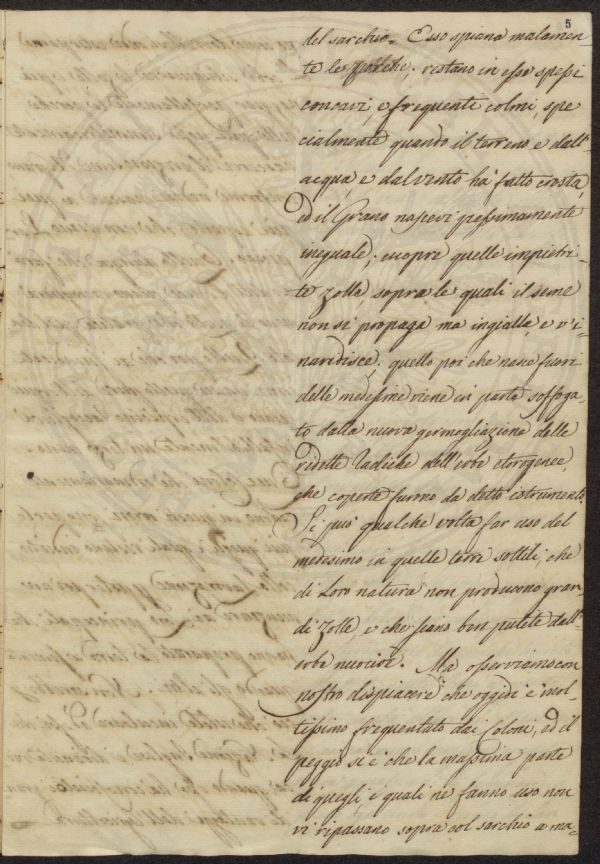 5
del sarchio. Esso spiana malamen-
te le porche. restano in esse spessi
concavi, e frequenti colmi, spe-
cialmente quando il terreno e dall'
acqua, e dal vento hà fatto crosta,
ed il Grano nascevi pessimamente
ineguale; cuopre quelle impietri-
te Zolle sopra le quali il seme
non si propaga ma ingialla, e v'i-
naridisce. quello poi che nasce fuori
delle medesime viene in parte soffoga-
to dalla nuova germogliazione delle
ridette Radiche dell'erbe eterogenee,
che coperte furono da detto istrumento.
Si può qualche volta far uso del
medesimo in quelle terre sottili, che
di Loro natura non producono gran-
di Zolle, e che siano ben pulite dall'
erbe nuocive. Ma osserviamo con
nostro dispiacere che oggidì è mol-
tissimo frequentato dai Coloni, ed il
peggio si è che la massima parte
di quegli, i quali ne fanno uso non
vi ripassano sopra col sarchio a ma-